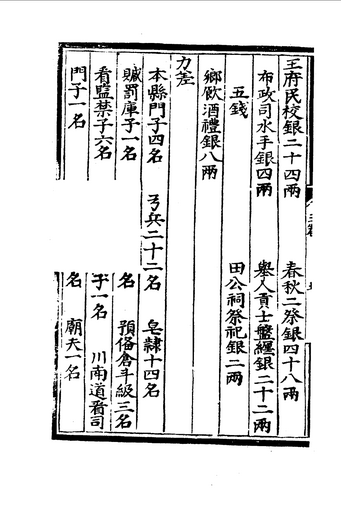 王府民校銀二十四兩　春秋二祭銀四十八兩
布政司水手銀四兩　舉人貢士盤纏銀二十二兩
五錢　田公祠祭祀銀二兩
鄉飲酒禮銀八兩
力差
本縣門子四名　弓兵二十二名　皂隸十四名
贓罰庫子一名　名　預備倉斗級三名
看監禁子六名　子一名　川南道看司
門子一名　名　廟夫一名